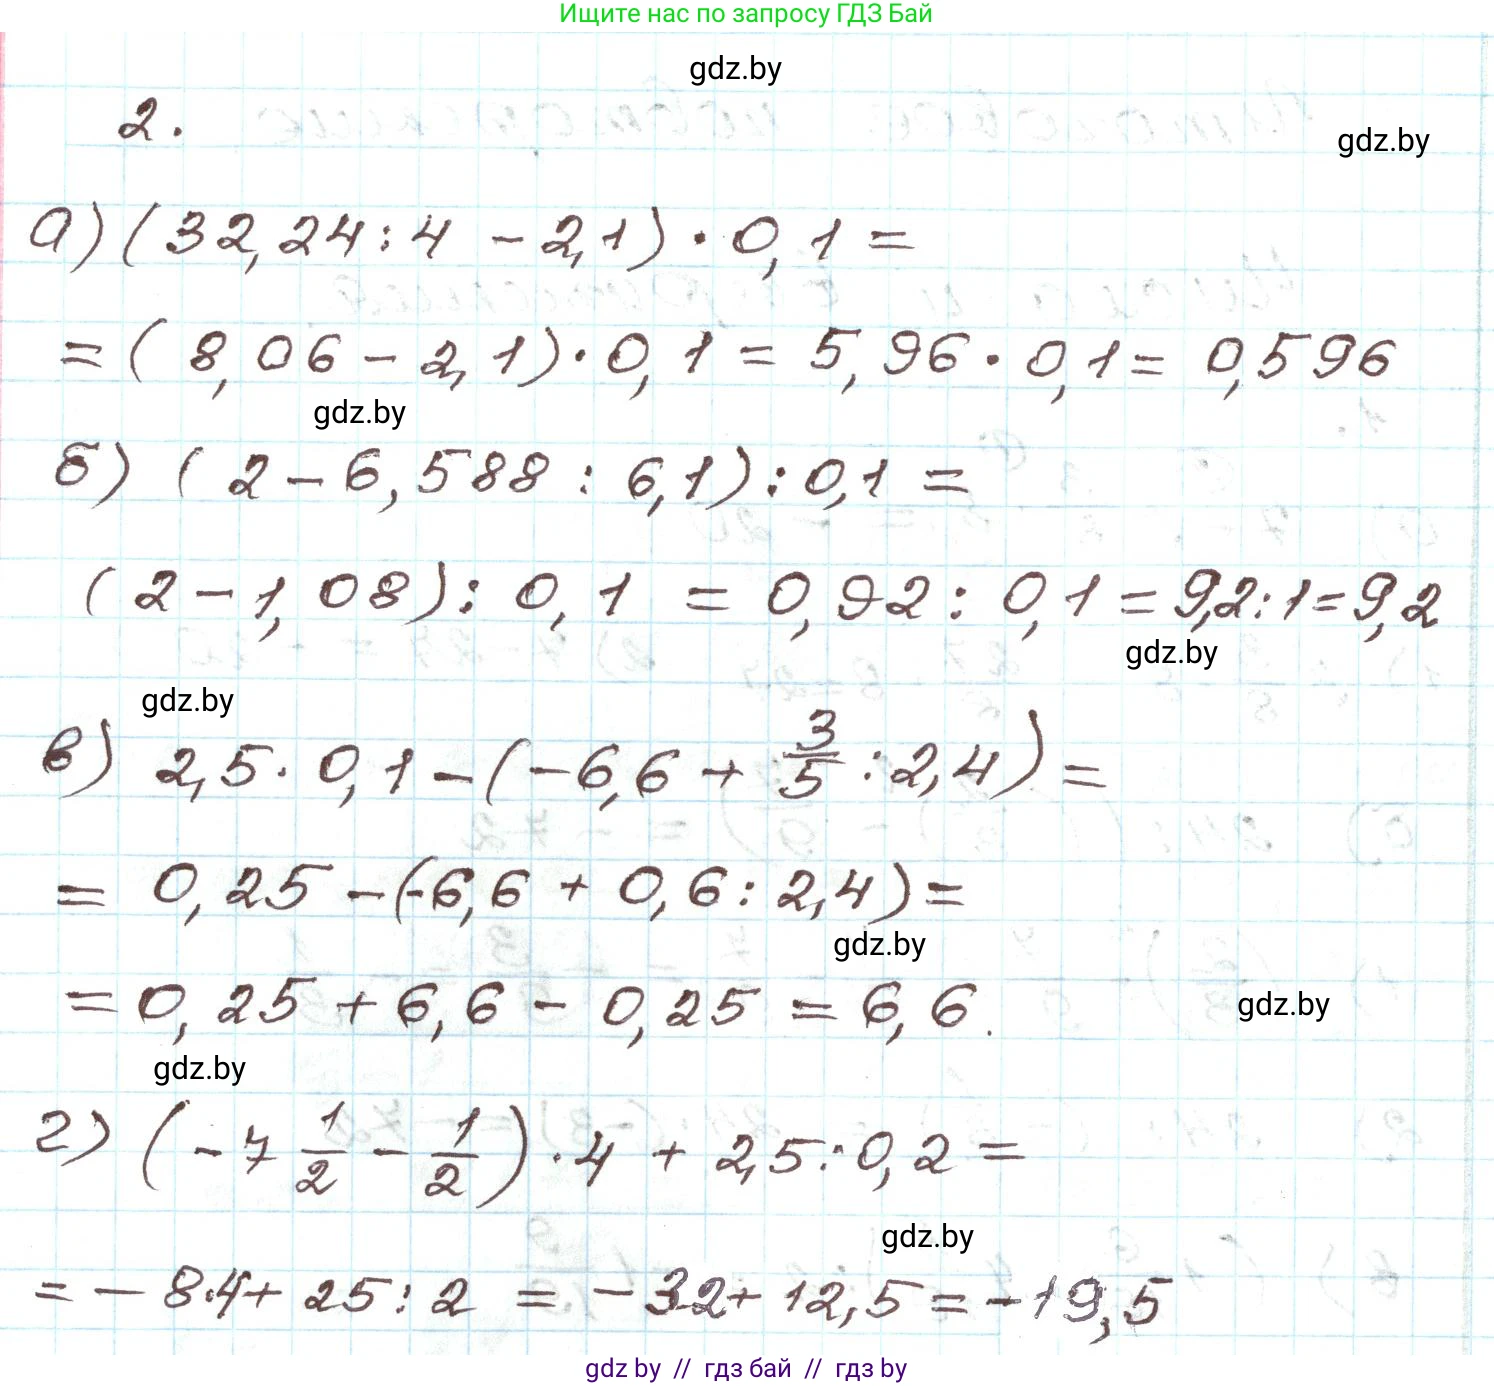 Ищите нас по запросу ГДЗ Бай
gdz.by
2.
gdz.by
а) (32,24:4 - 2,1) · 0,1 =
= (8,06 - 2,1) · 0,1 = 5,96 · 0,1 = 0,596
gdz.by
б) (2 - 6,588 : 6,1) : 0,1 =
(2 - 1,08) : 0,1 = 0,92 : 0,1 = 9,2 : 1 = 9,2
gdz.by
gdz.by
в) 2,5 · 0,1 - (-6,6 + 3/5 : 2,4) =
= 0,25 - (-6,6 + 0,6 : 2,4) =
gdz.by
= 0,25 + 6,6 - 0,25 = 6,6.
gdz.by
gdz.by
г) (-7 1/2 - 1/2) · 4 + 2,5 : 0,2 =
gdz.by
= - 8·4 + 25 : 2 = - 32 + 12,5 = -19,5
gdz by // гдз бай // гдз by